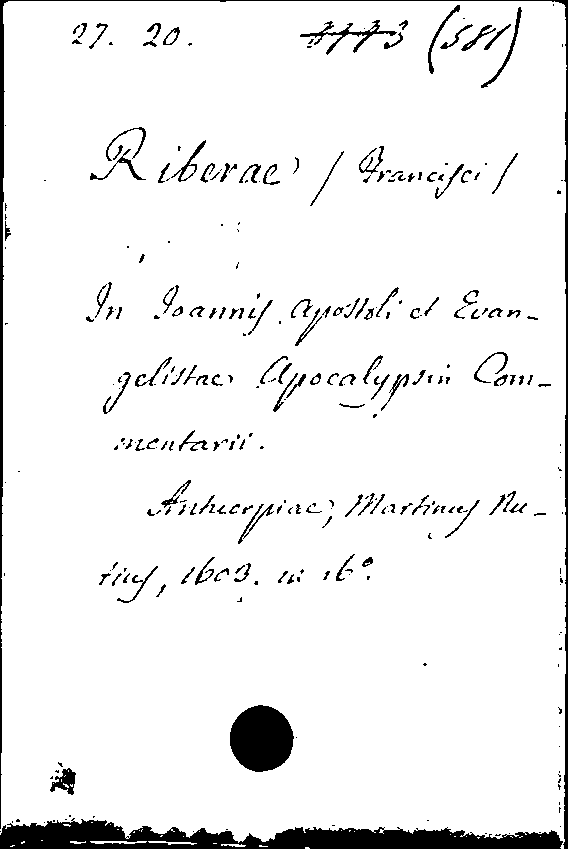 27. 20. 3773 (581)
Riberae / Francisci /
In Joannis Apostoli et Evan-
gelistae Apocalypsin Com-
mentarii.
Antuerpiae, Martinus Nu-
tius, 1603. in 16°.